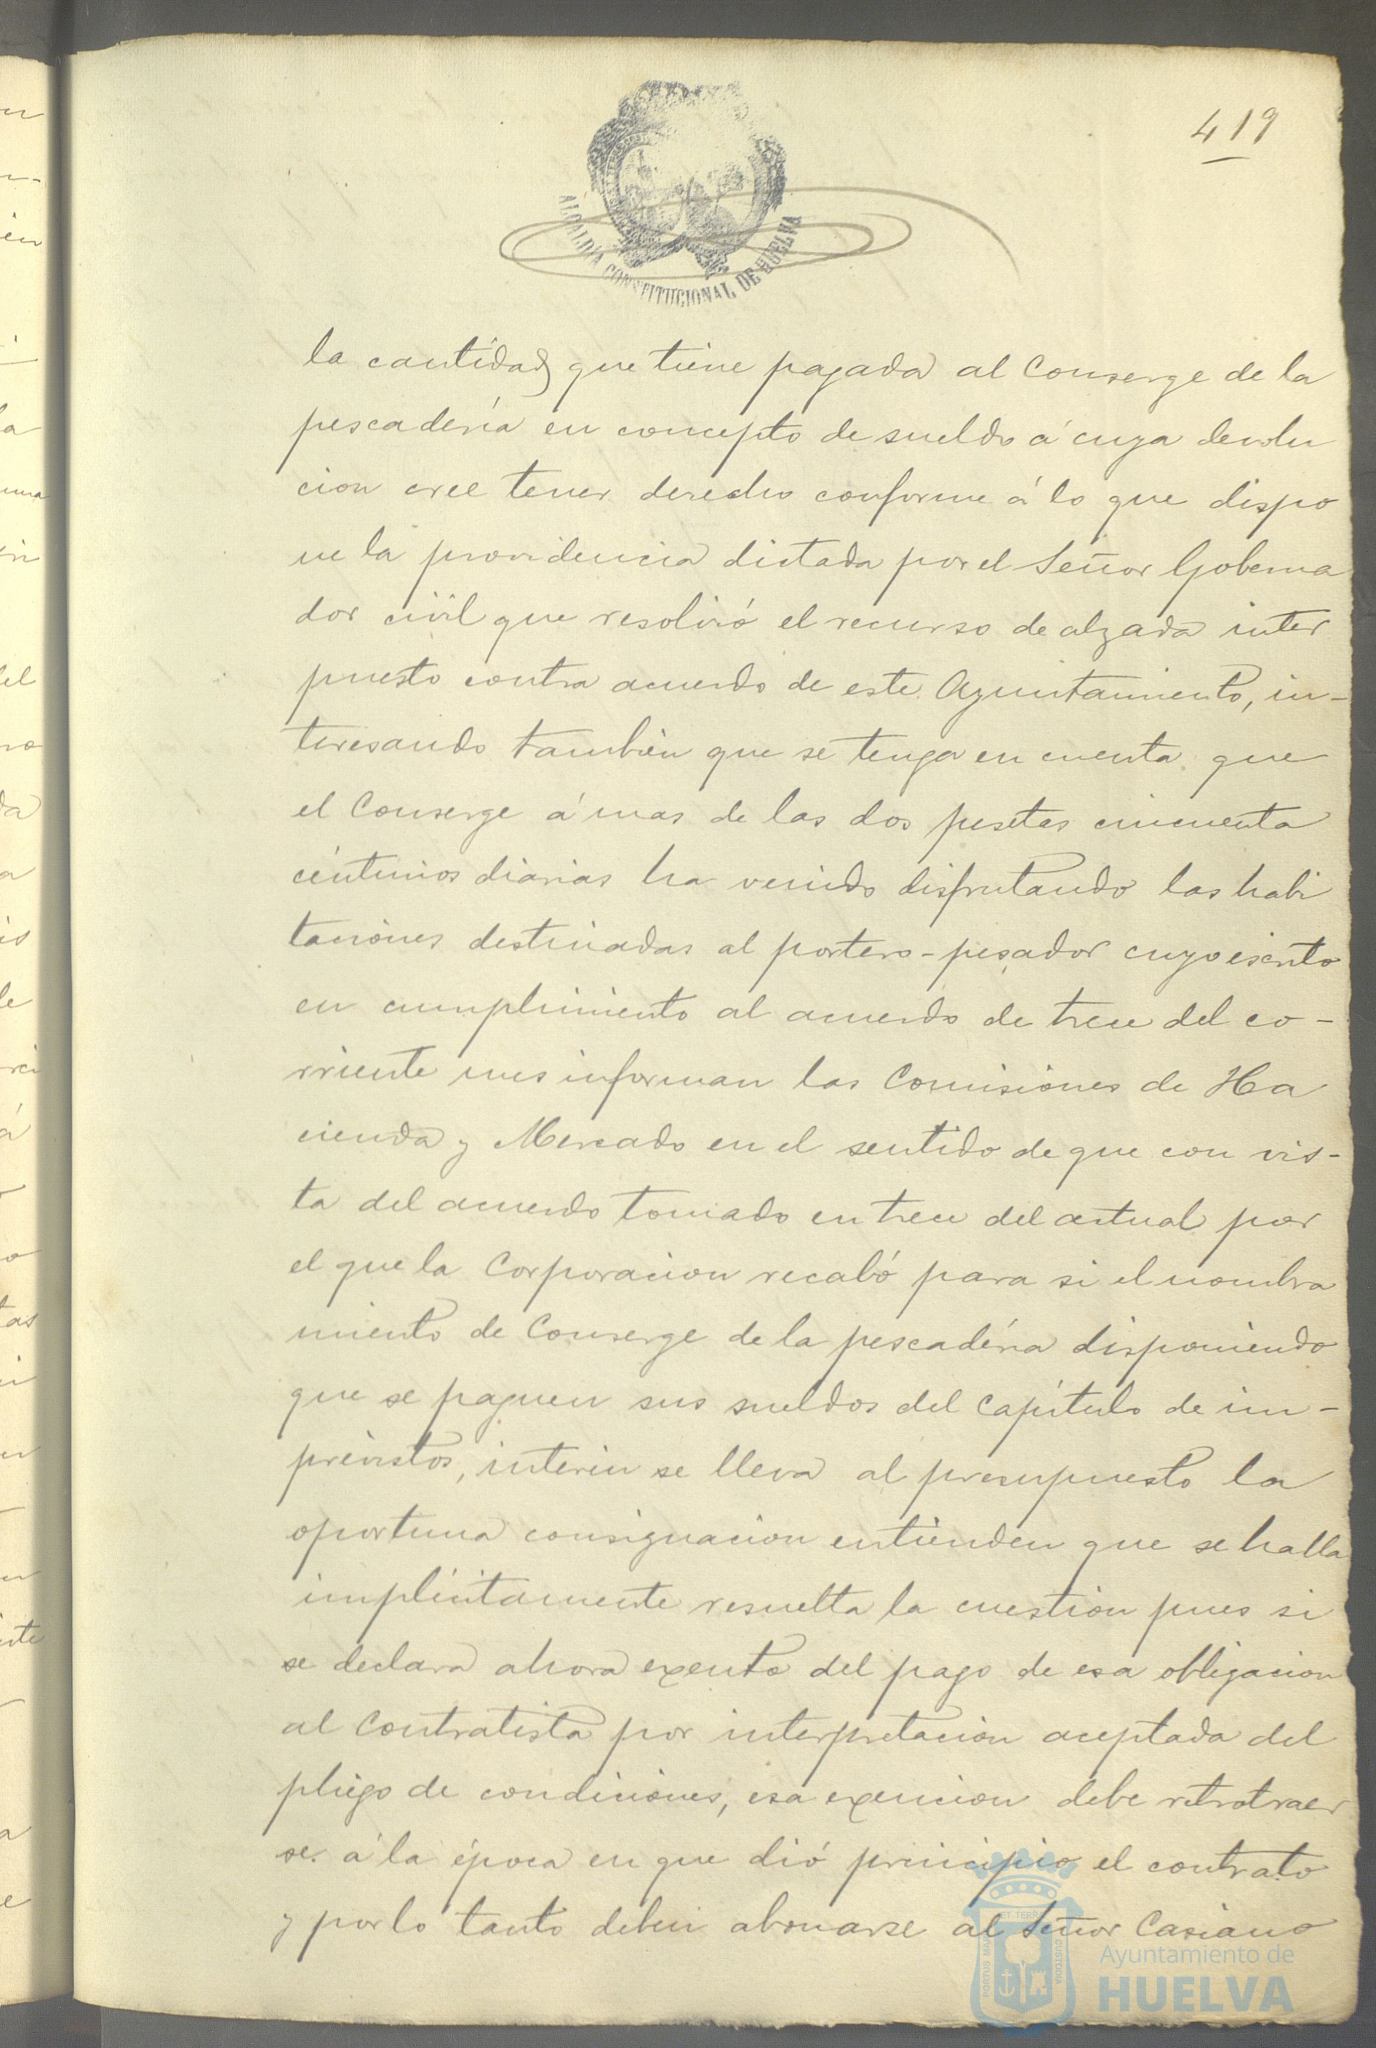 419
ALCALDIA CONSTITUCIONAL DE HUELVA
la cantidad que tiene pagada al Conserge de la
pescadería en concepto de sueldo á cuya devolu
cion cree tener derecho conforme á lo que dispo
ne la providencia dictada por el Señor Goberna
dor civil que resolvió el recurso de alzada inter
puesto contra acuerdo de este Ayuntamiento, in-
teresando también que se tenga en cuenta que
el Conserge á mas de las dos pesetas cincuenta
céntimos diarias ha venido disfrutando las habi
taciones destinadas al portero-pesador cuyo escrito
en cumplimiento al acuerdo de trece del co-
rriente mes informan las Comisiones de Ha
cienda y Mercado en el sentido de que con vis-
ta del acuerdo tomado en trece del actual por
el que la Corporacion recabó para si el nombra
miento de Conserge de la pescadéria disponiendo
que se paguen sus sueldos del capítulo de im-
previstos, interin se lleva al presupuesto la
oportuna consignacion entienden que se halla
implicitamente resuelta la cuestion pues si
se declara ahora exento del pago de esa obligacion
al Contratista por interpretacion aceptada del
pliego de condiciones, esa exencion debe retrotraer
se á la época en que dió principio el contrato
y por lo tanto deben abonarse al Señor Casiano
Ayuntamiento de
HUELVA